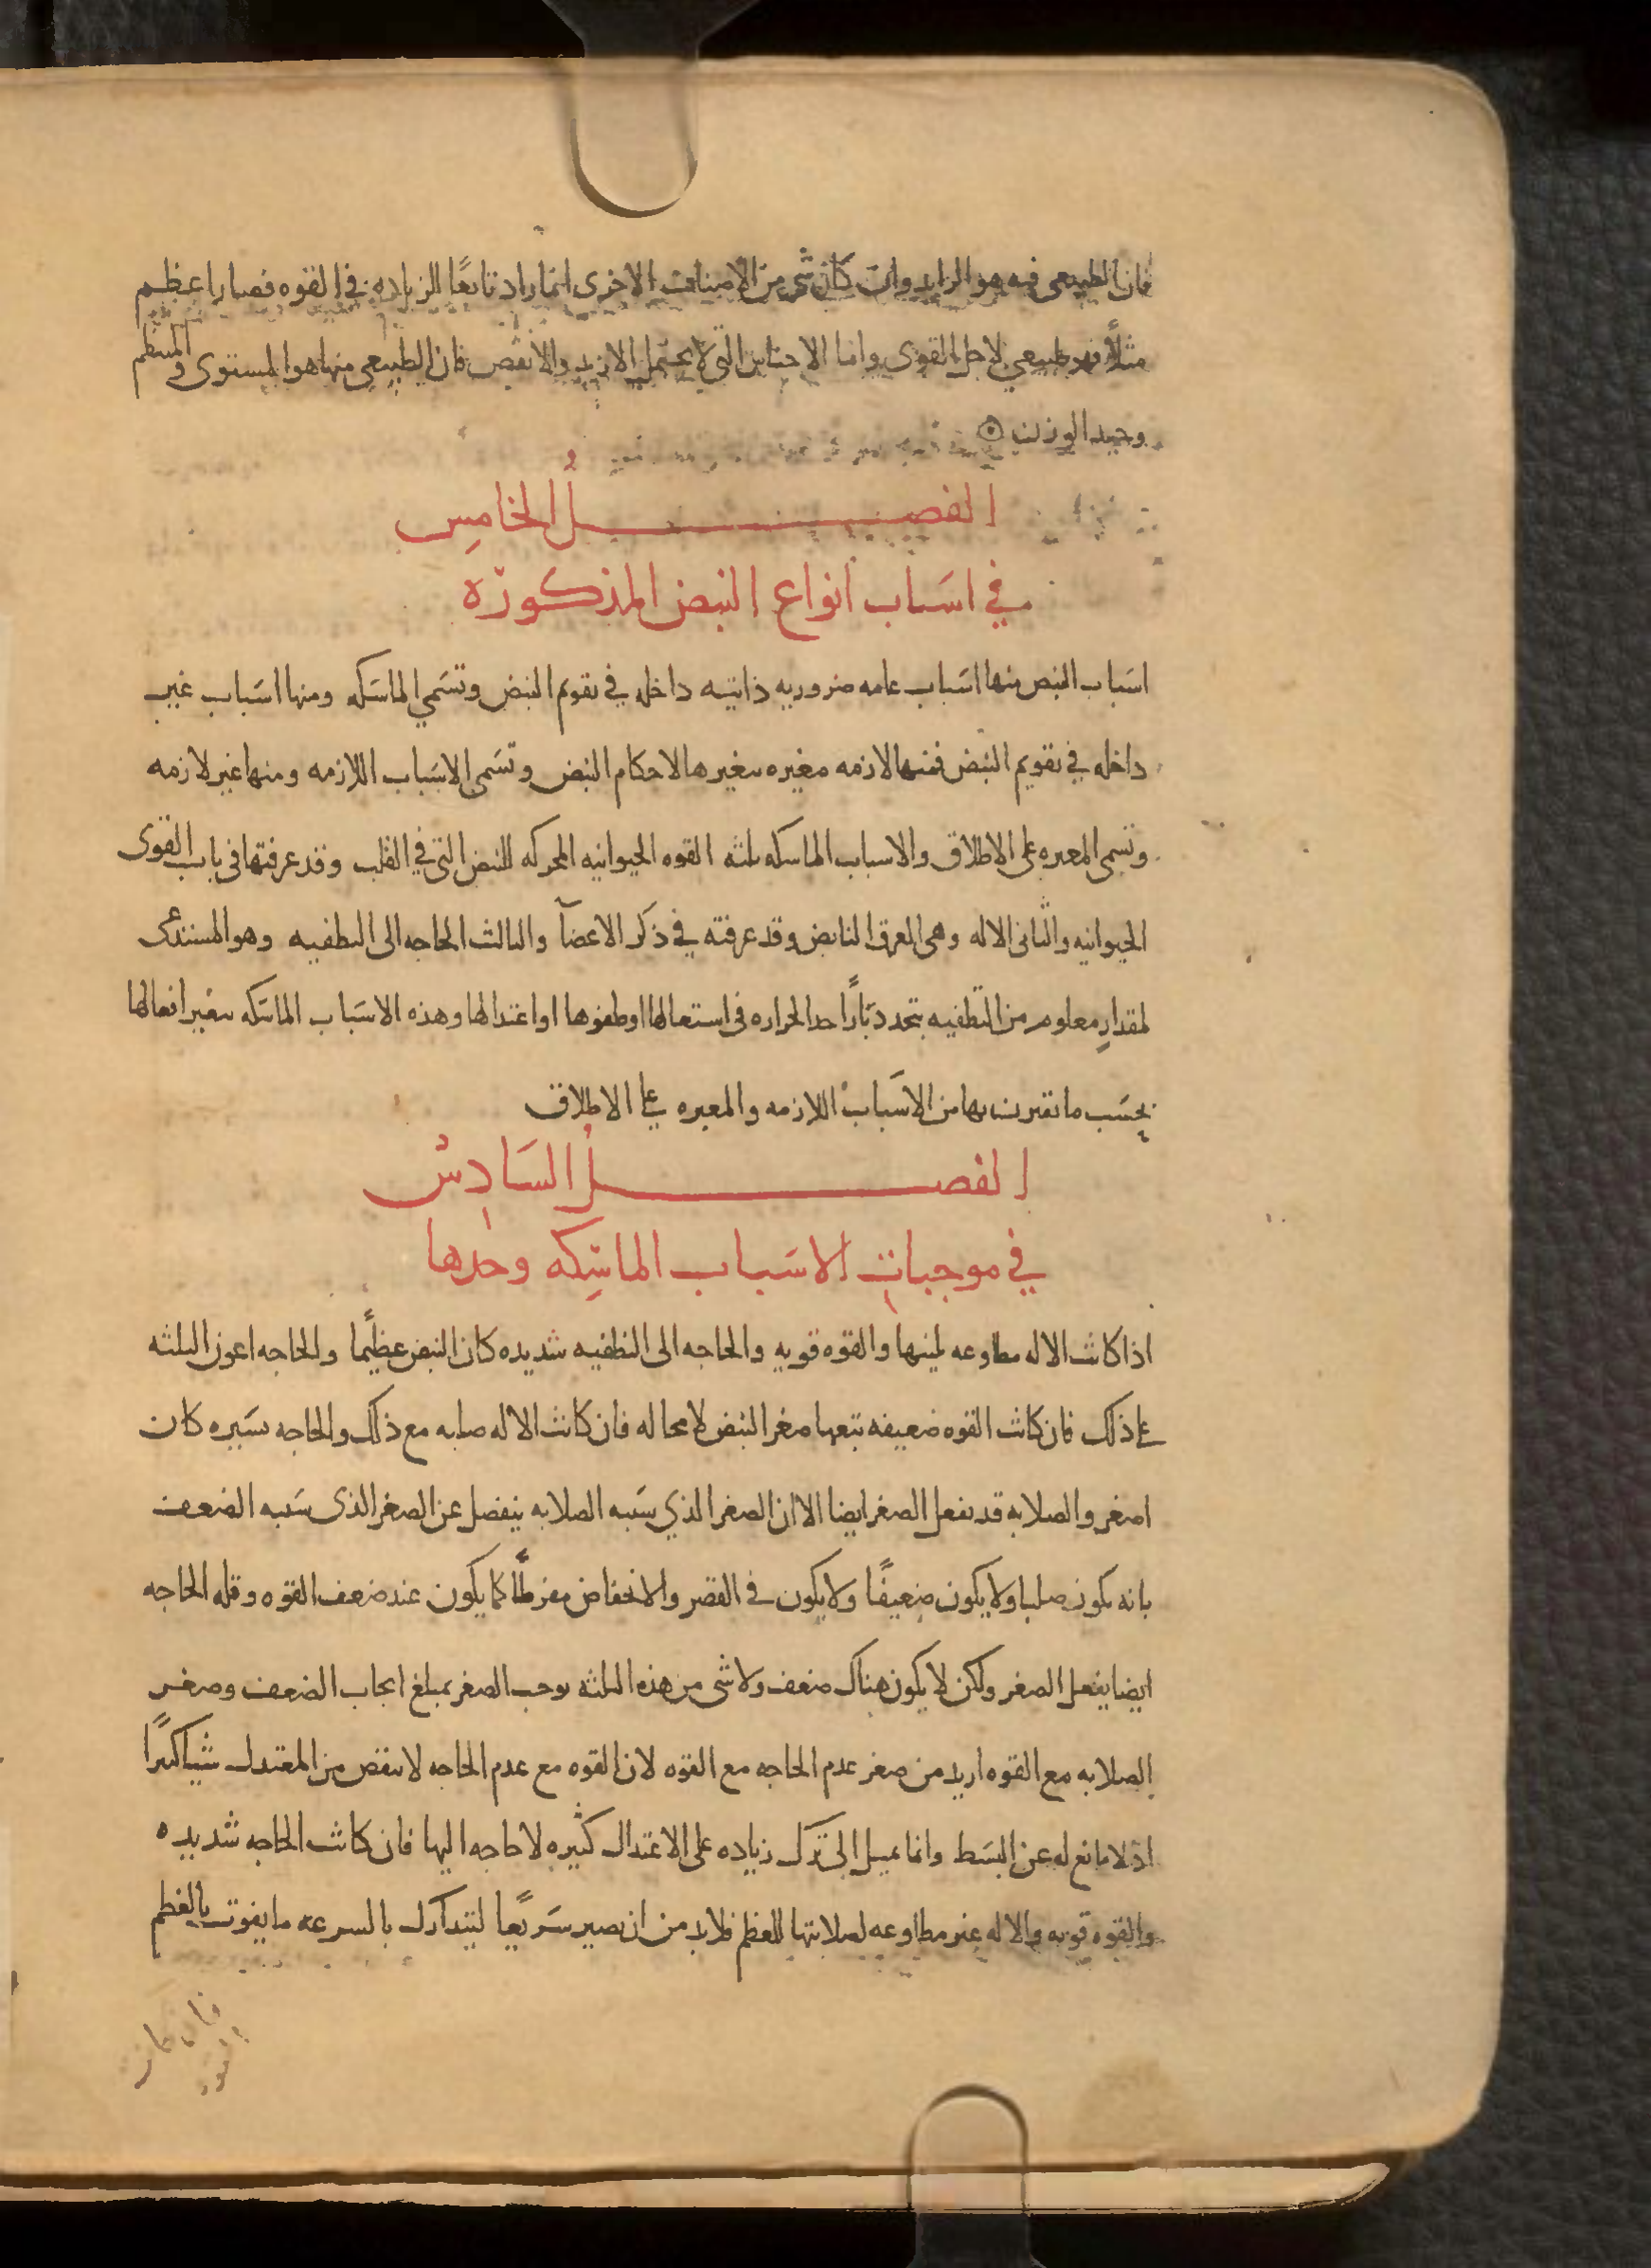 فان الطبيعى فيه هو الزايد وان كان شى من الاصناف الاخرى انما زاد تابعًا للزياده فى القوه فصار اعظم
مثلاً فهو طبيعي لاجل القوى واما الاجناس التى لا تحتمل الازيد والانقص فان الطبيعى منها هو المستوى والمنتظم
وجيد الوزن
الفصل الخامس
في اسباب انواع النبض المذكوره
اسباب النبض منها اسباب عامه ضروريه ذاتيه داخله في تقويم النبض وتسمي الماسكه ومنها اسباب غير
داخله في تقويم النبض فمنها لازمه مغيره بتغيرها لاحكام النبض وتسمى الاسباب اللازمه ومنها غير لازمه
وتسمى المغيره على الاطلاق والاسباب الماسكه ثلثه القوه الحيوانيه المحركه للنبض التى في القلب وقد عرفتها فى باب القوى
الحيوانيه والثانى الاله وهى العرق النابض وقد عرفته في ذكر الاعضآ والثالث الحاجه الى التطفيه وهو المستدعى
لمقدارٍ معلوم من التطفيه يتجدد بازآ حد الحراره فى استعالها او طفوها او اعتدالها وهذه الاسباب الماسكه يتغير افعالها
بحسب ما تقترن بها من الاسباب اللازمه والمغيره على الاطلاق
الفصل السادس
في موجبات الاسباب الماسكه وحدها
اذا كانت الاله مطاوعه لينها والقوه قويه والحاجه الى التطفيه شديده كان النبض عظيمًا والحاجه اعون الثلثه
على ذلك فان كانت القوه ضعيفه تبعها صغر النبض لا محاله فان كانت الاله صلبه مع ذلك والحاجه يسيره كان
اصغر والصلابه قد تفعل الصغر ايضا الا ان الصغر الذي سببه الصلابه ينفصل عن الصغر الذى سببه الضعف
بانه يكون صلبا ولا يكون ضعيفًا ولا يكون فى القصر والانخفاض مفرطًا كما يكون عند ضعف القوه وقله الحاجه
ايضا يفعل الصغر ولكن لا يكون هناك ضعف ولا شى من هذه الثلثه يوجب الصغر بمبلغ ايجاب الضعف وصغر
الصلابه مع القوه ازيد من صغر عدم الحاجه مع القوه لان القوه مع عدم الحاجه لا تنقص من المعتدل شيا كثيرًا
اذ لا مانع له عن البسط وانما يميل الى ترك زياده على الاعتدال كثيره لا حاجه اليها فان كانت الحاجه شديده
والقوه قويه والاله غير مطاوعه لصلابتها للعظم فلا بد من ان يصير سريعًا ليتدارك بالسرعه ما يفوت بالعظم
فان كانت
القوه